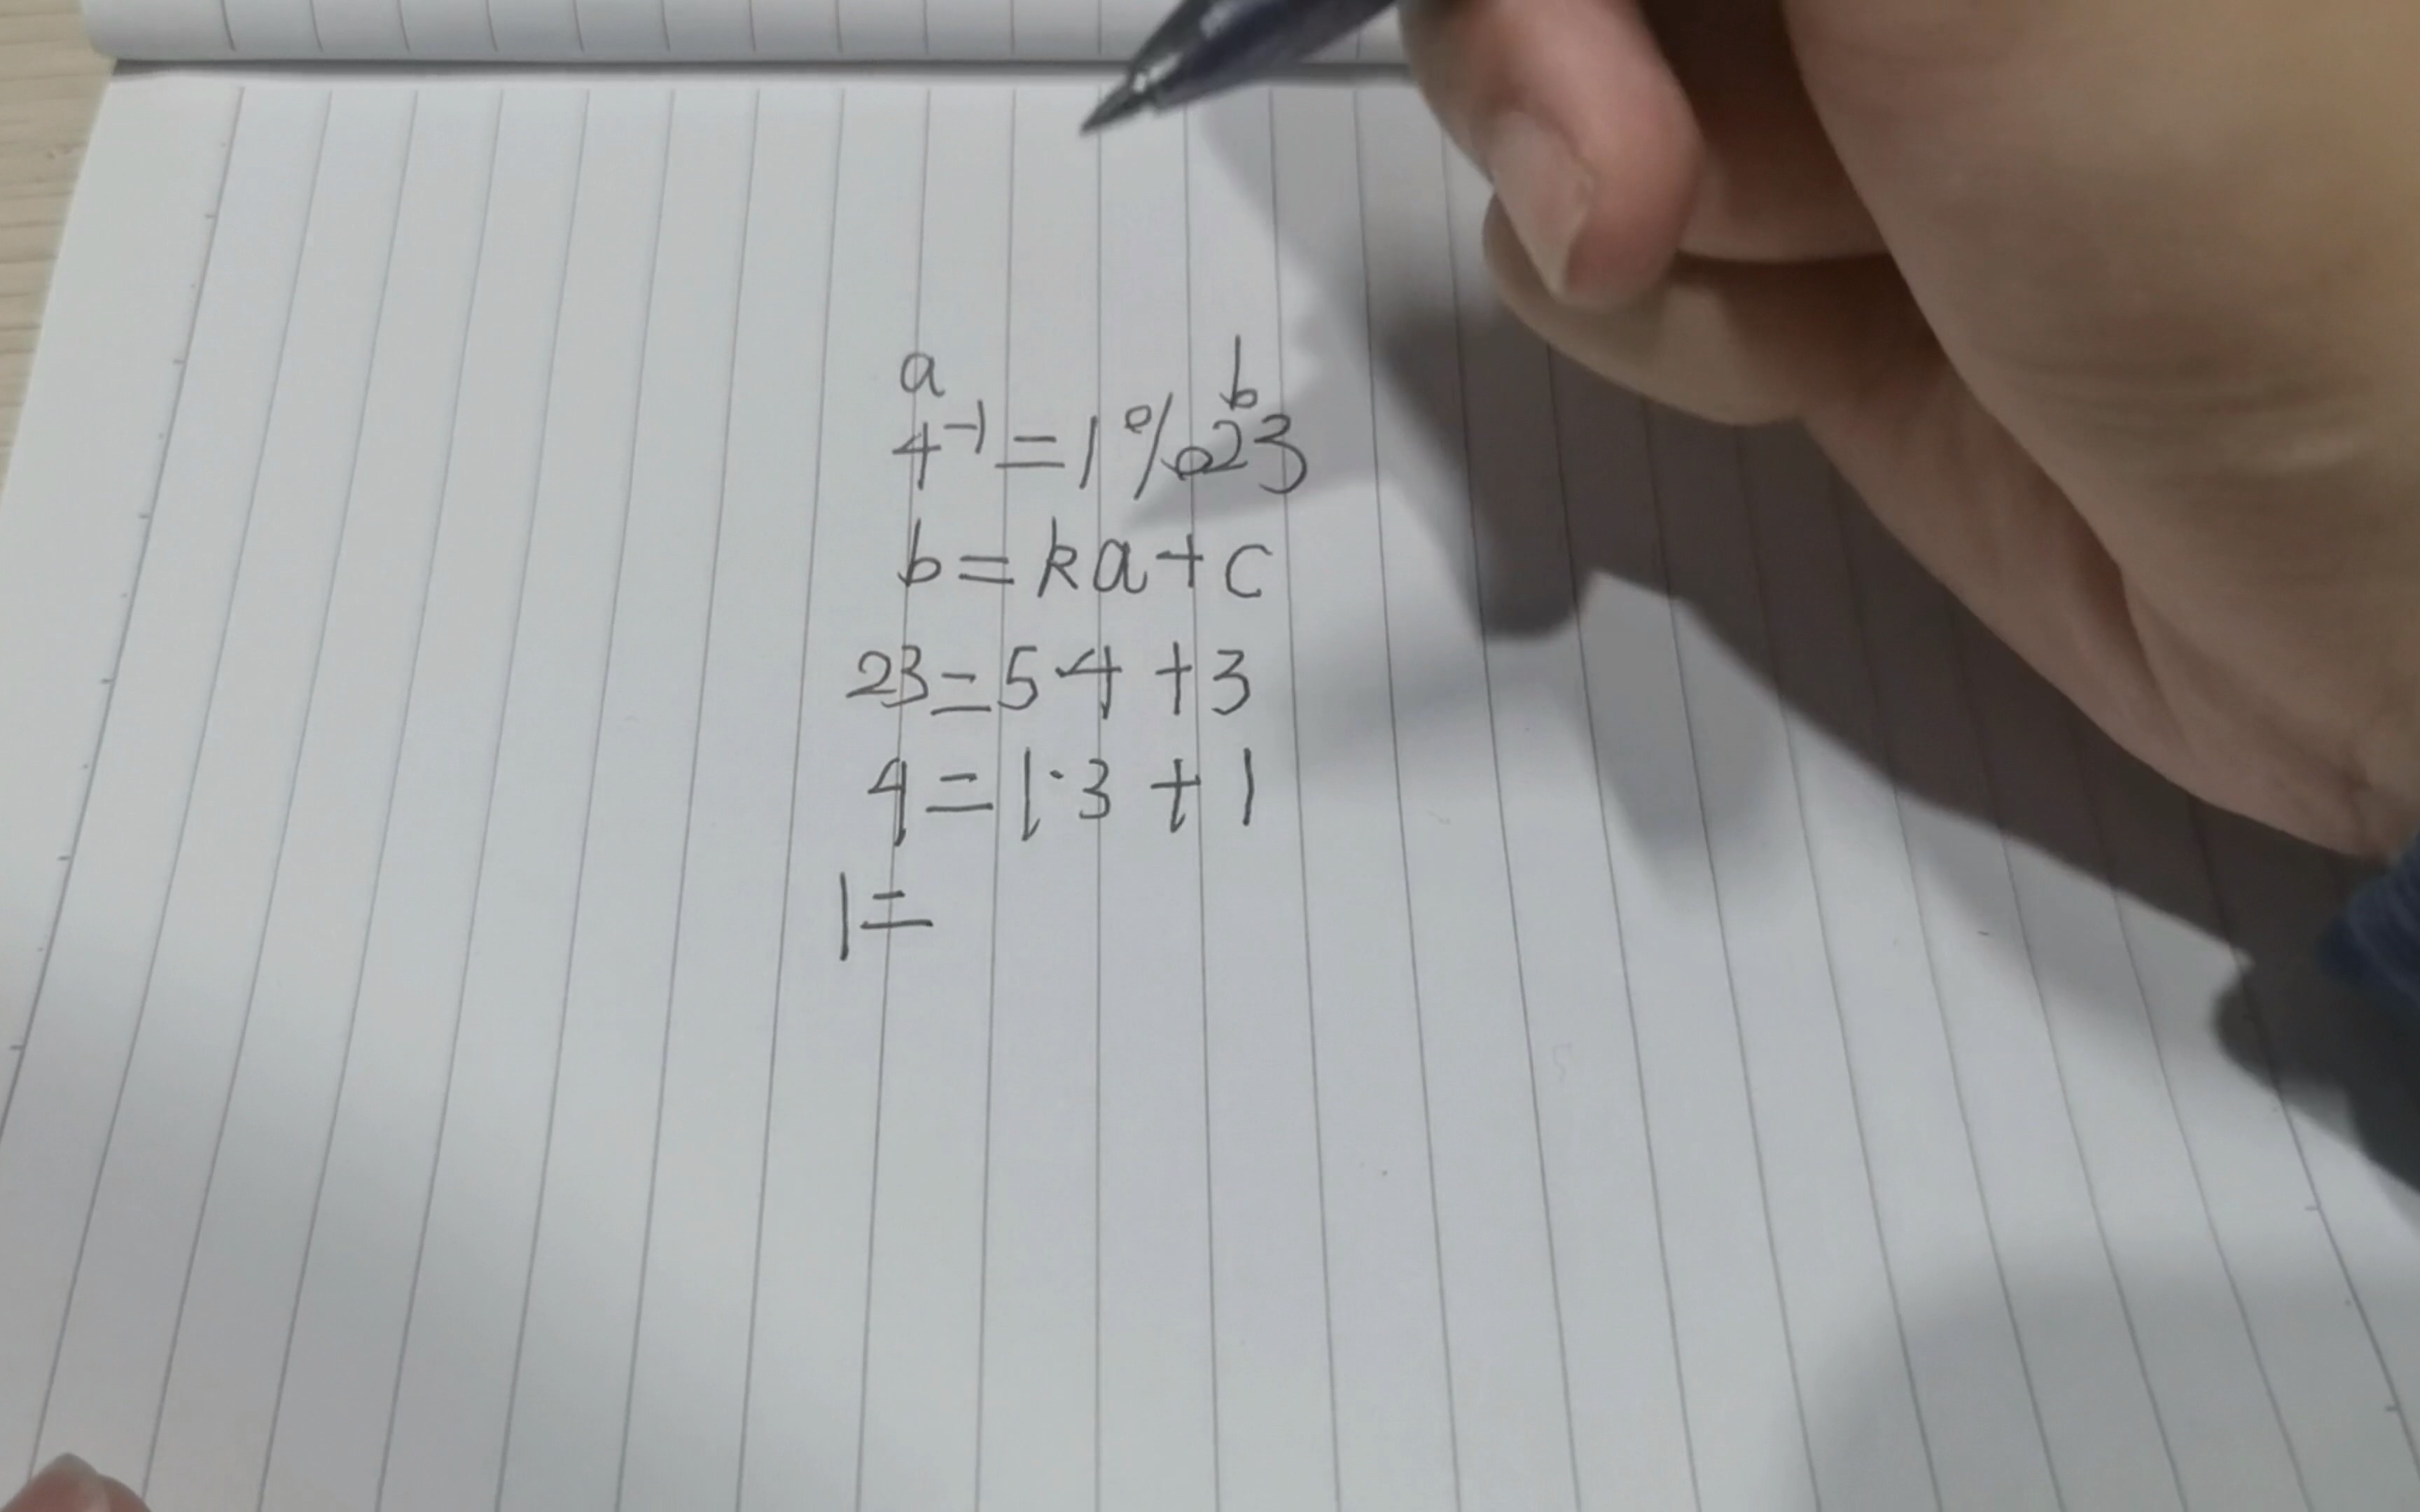 a b
4⁻¹ = 1 % 23
b = ka + c
23 = 5·4 + 3
4 = 1·3 + 1
1 =